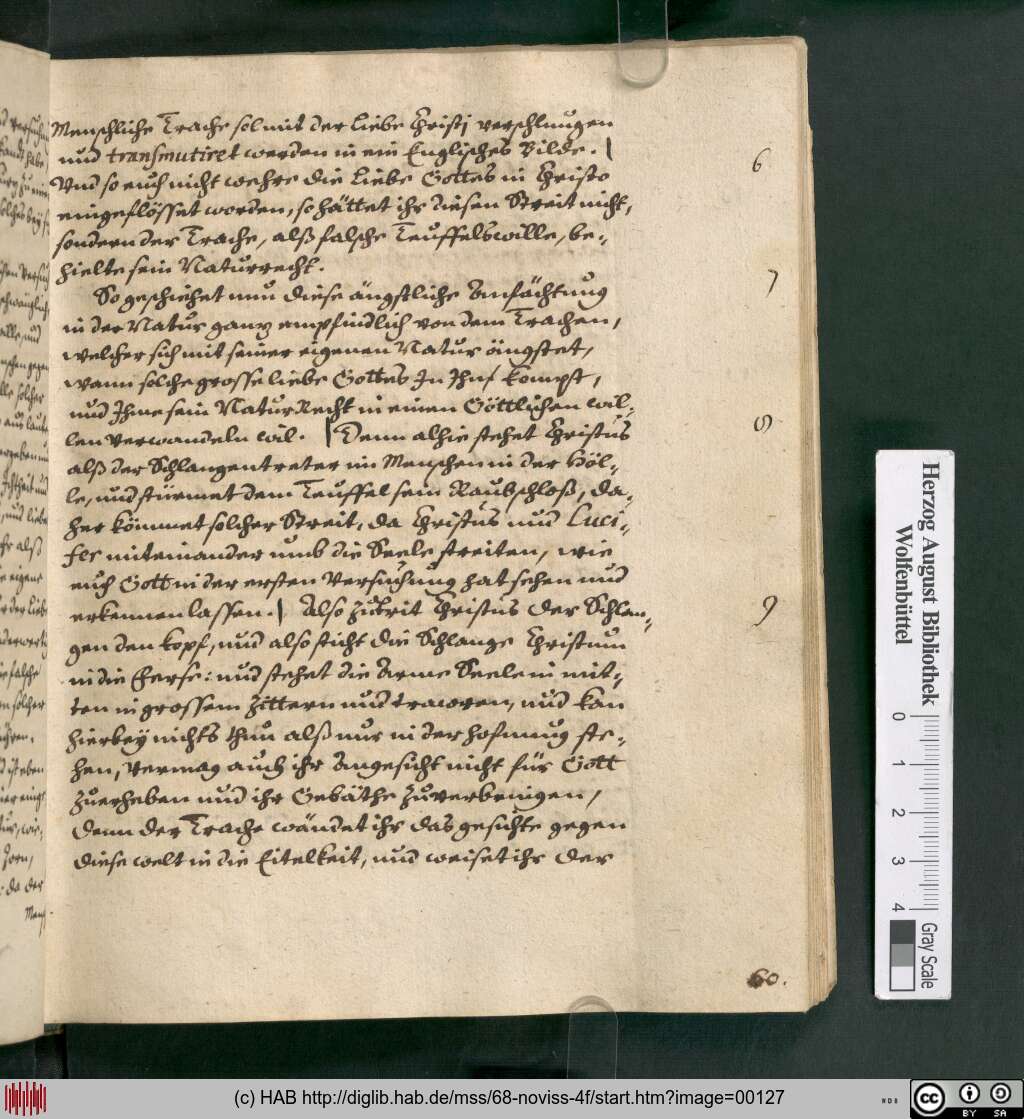 Menschliche Trache sol mit der Liebe Christj verschlungen
und transmutiret werden in ein Englisches Bilde. |
6
Und so euch nicht wehre die Liebe Gottes in Christo
eingeflösset worden, so hättet ihr diesen Streit nicht,
sondern der Trache, alß falsche Teuffelswille, be-
hielte sein Naturrecht.
7
So geschiehet nun diese ängstliche Anfächtung
in der Natur gantz empfindlich von dem Trachen,
welcher sich mit seiner eigenen Natur ängstet,
wann solche grosse liebe Gottes In Ihn kompt,
und Ihme sein NaturRecht in einen Göttlichen wil-
8
len verwandeln wil. | Denn alhie stehet Christus
alß der Schlangentreter im Menschen in der Höl-
le, und stürmet dem Teuffel sein Raubschloß, da-
her kömmet solcher Streit, da Christus und Luci-
fer miteinander umb die Seele streiten, wie
euch Gott in der ersten Versuchung hat sehen und
9
erkennen lassen. | Also zutrit Christus der Schlan-
gen den kopf, und also sticht die Schlange Christum
in die Ferse: und stehet die Arme Seele in mit-
ten in grossem zittern und trauren, und kan
hierbey nichts thun alß nur in der hofnung ste-
hen, vermag auch ihr Angesicht nicht für Gott
zuerheben und ihr Gebäthe zuverbringen,
denn der Trache wändet ihr das gesichte gegen
diese welt in die Eitelkeit, und weiset ihr der
60.
Herzog August Bibliothek
Wolfenbüttel
0 1 2 3 4
Gray Scale
(c) HAB http://diglib.hab.de/mss/68-noviss-4f/start.htm?image=00127
cc BY SA